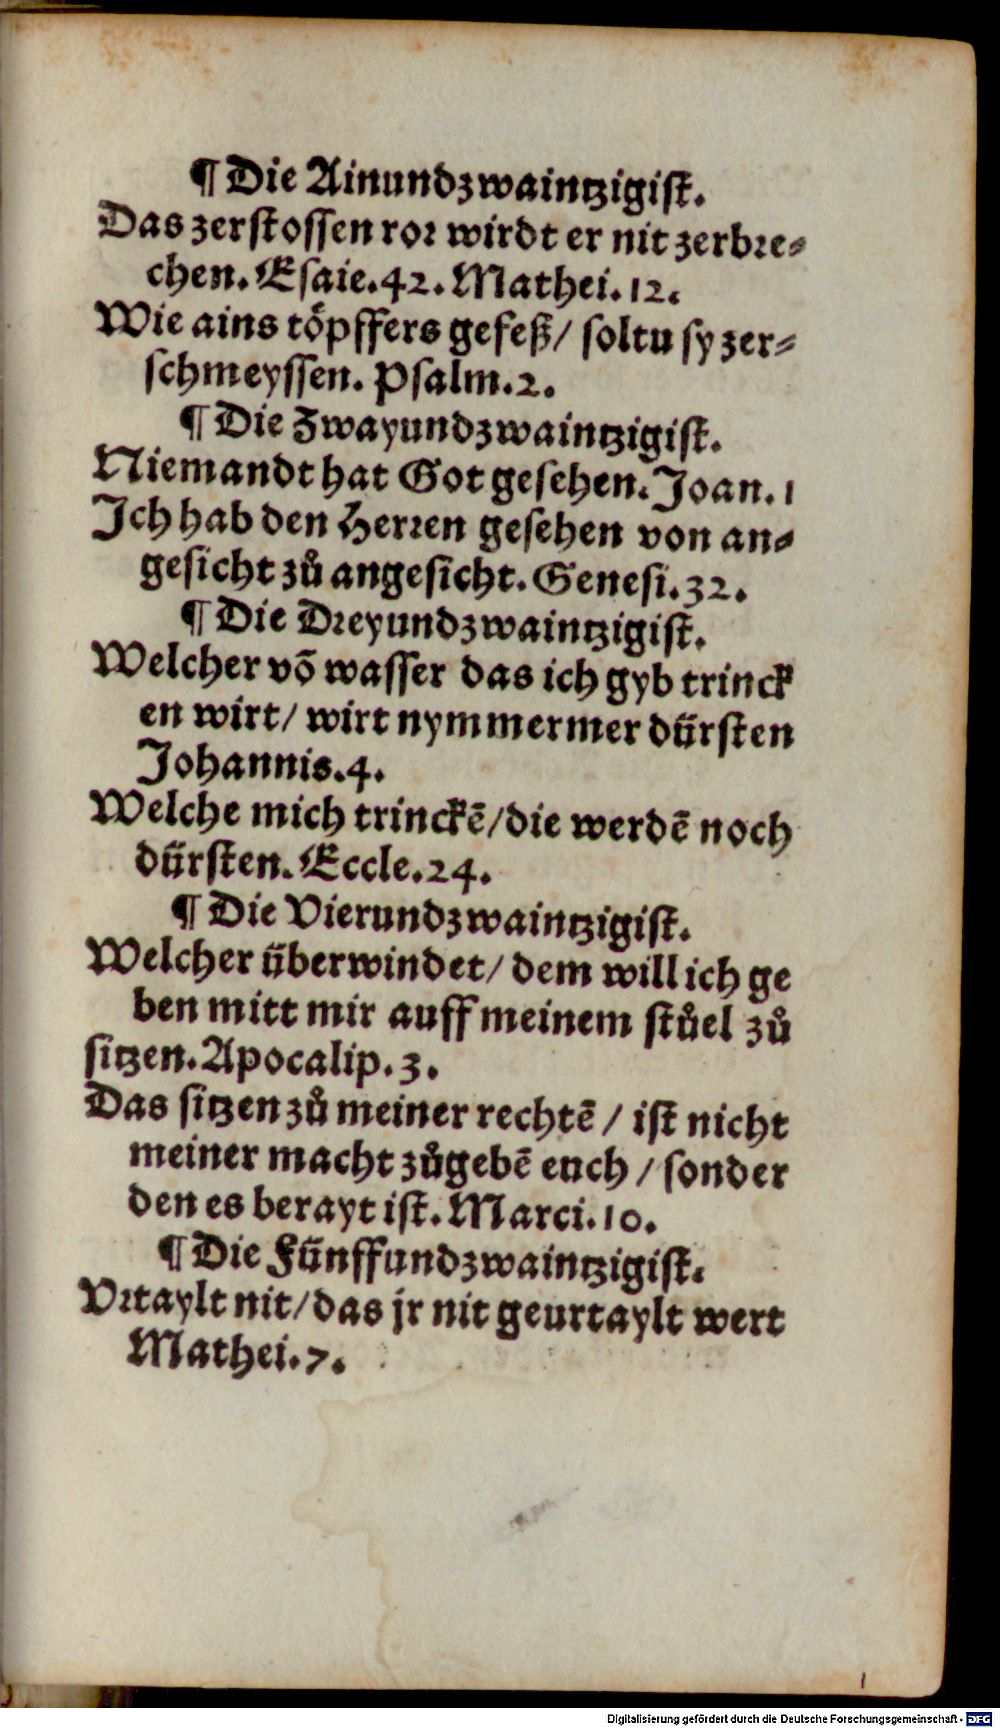 ¶ Die Ainundzwaintzigist.
Das zerstossen ror wirdt er nit zerbre⸗
chen. Esaie. 42. Mathei. 12.
Wie ains töpffers gefeß / soltu sy zer⸗
schmeyssen. Psalm. 2.
¶ Die Zwayundzwaintzigist.
Niemandt hat Got gesehen. Joan. 1
Ich hab den Herren gesehen von an⸗
gesicht zů angesicht. Genesi. 32.
¶ Die Dreyundzwaintzigist.
Welcher võ wasser das ich gyb trinck
en wirt / wirt nymmermer dürsten
Johannis. 4.
Welche mich trinckẽ / die werdẽ noch
dürsten. Eccle. 24.
¶ Die Vierundzwaintzigist.
Welcher überwindet / dem will ich ge
ben mitt mir auff meinem stůel zů
sitzen. Apocalip. 3.
Das sitzen zů meiner rechtẽ / ist nicht
meiner macht zůgebẽ euch / sonder
den es berayt ist. Marci. 10.
¶ Die Fünffundzwaintzigist.
Vrtaylt nit / das jr nit geurtaylt wert
Mathei. 7.
Digitalisierung gefördert durch die Deutsche Forschungsgemeinschaft - DFG